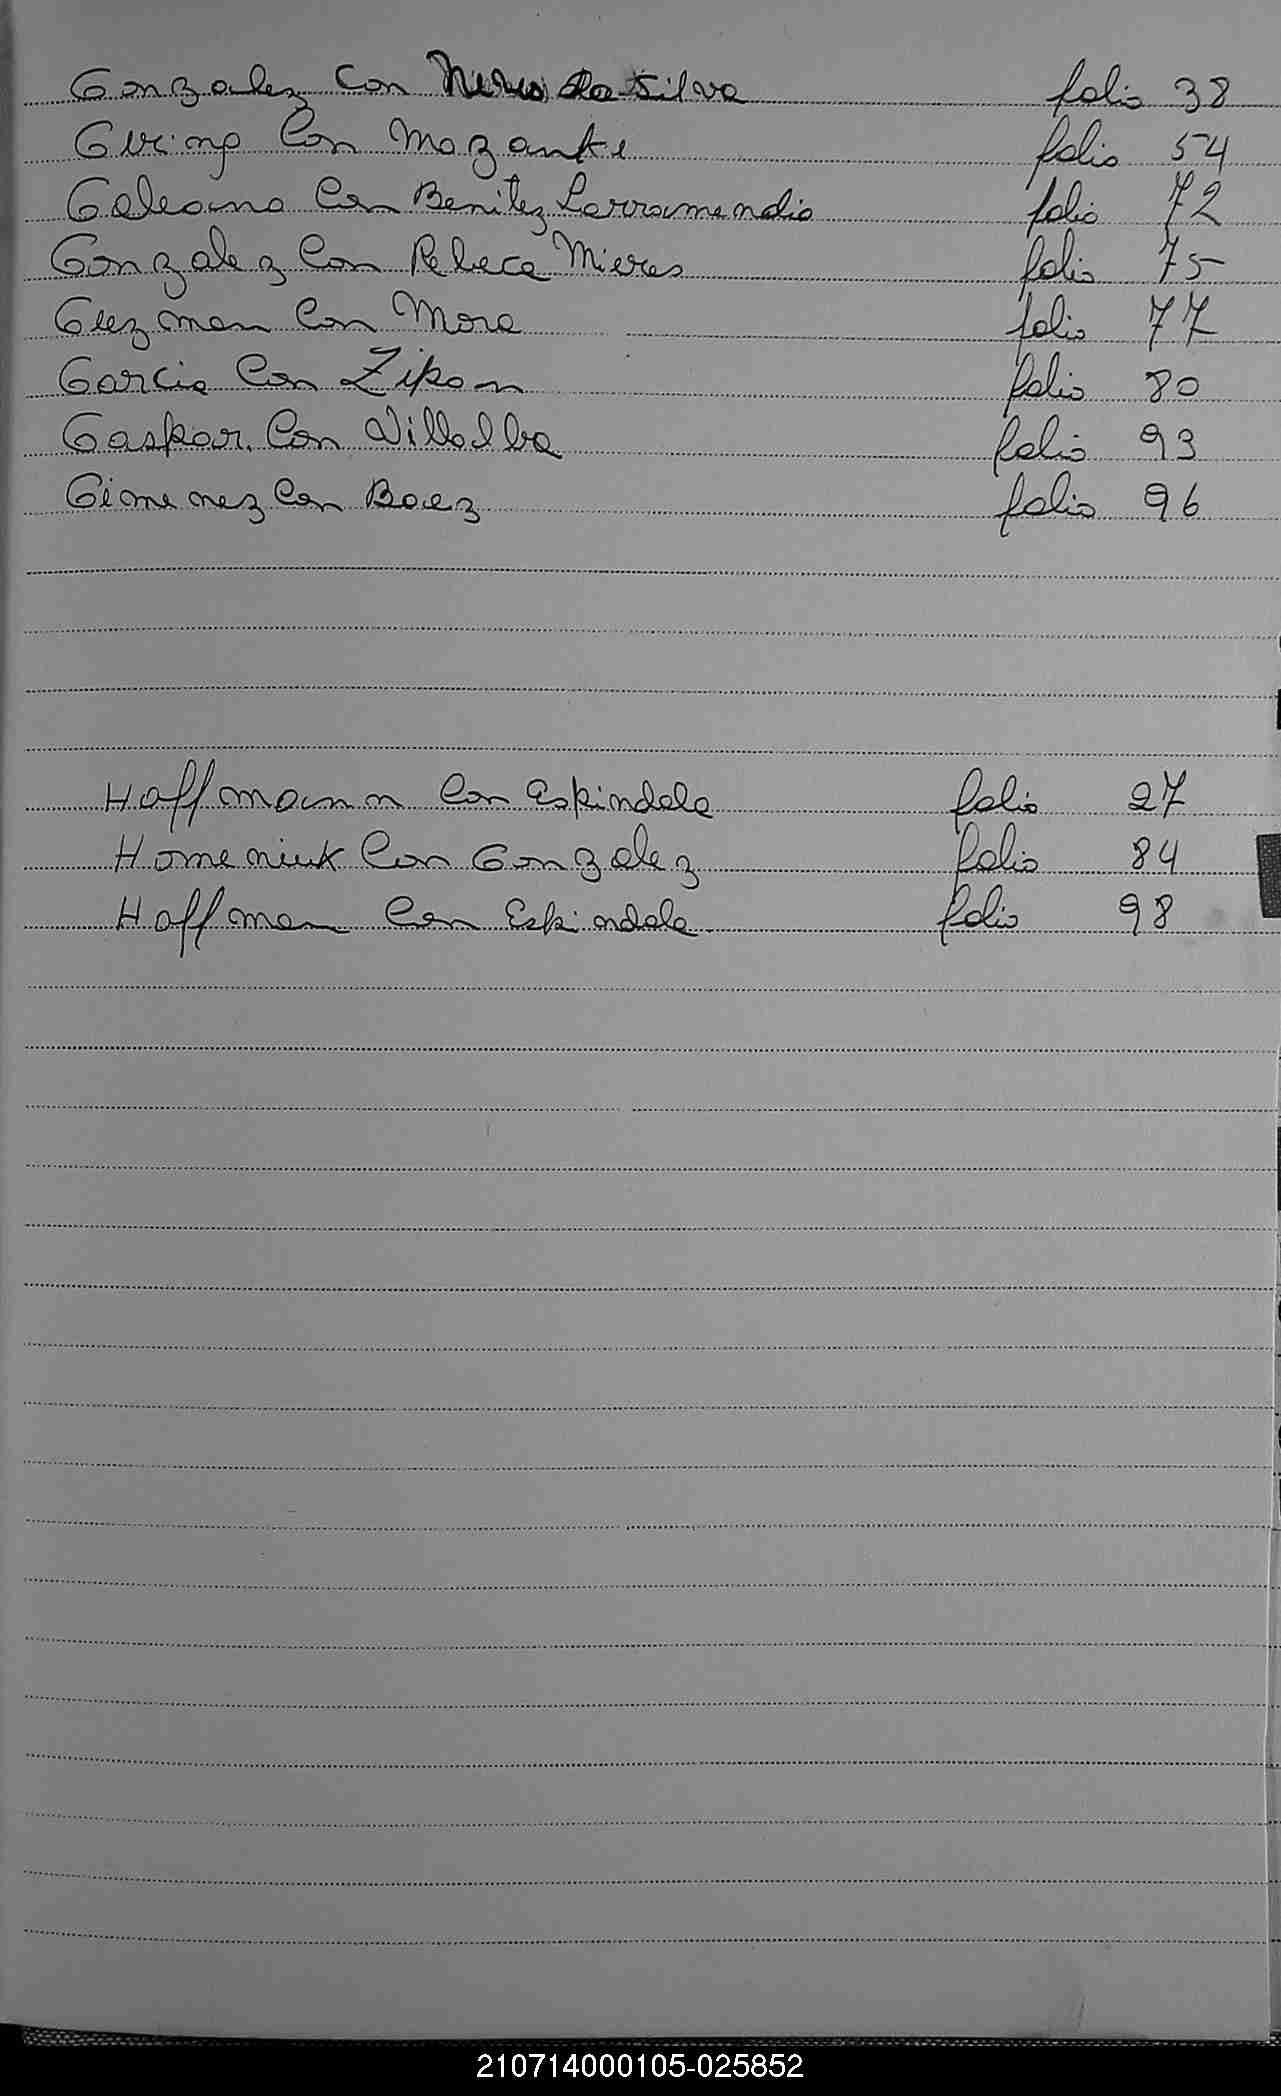 Gonzalez con Neres da Silva folio 38
Guring Con Mazante folio 54
Galeano Con Benitez Larramendia folio 72
Gonzalez Con Rebeca Mieres folio 75
Guzman Con Mora folio 77
Garcia Con Zipan folio 80
Gaspar Con Villalba folio 93
Gimenez Con Baez folio 96
Hoffmann Con Espindola folio 27
Homeniuk Con Gonzalez folio 84
Hoffman Con Espindola folio 98
210714000105-025852